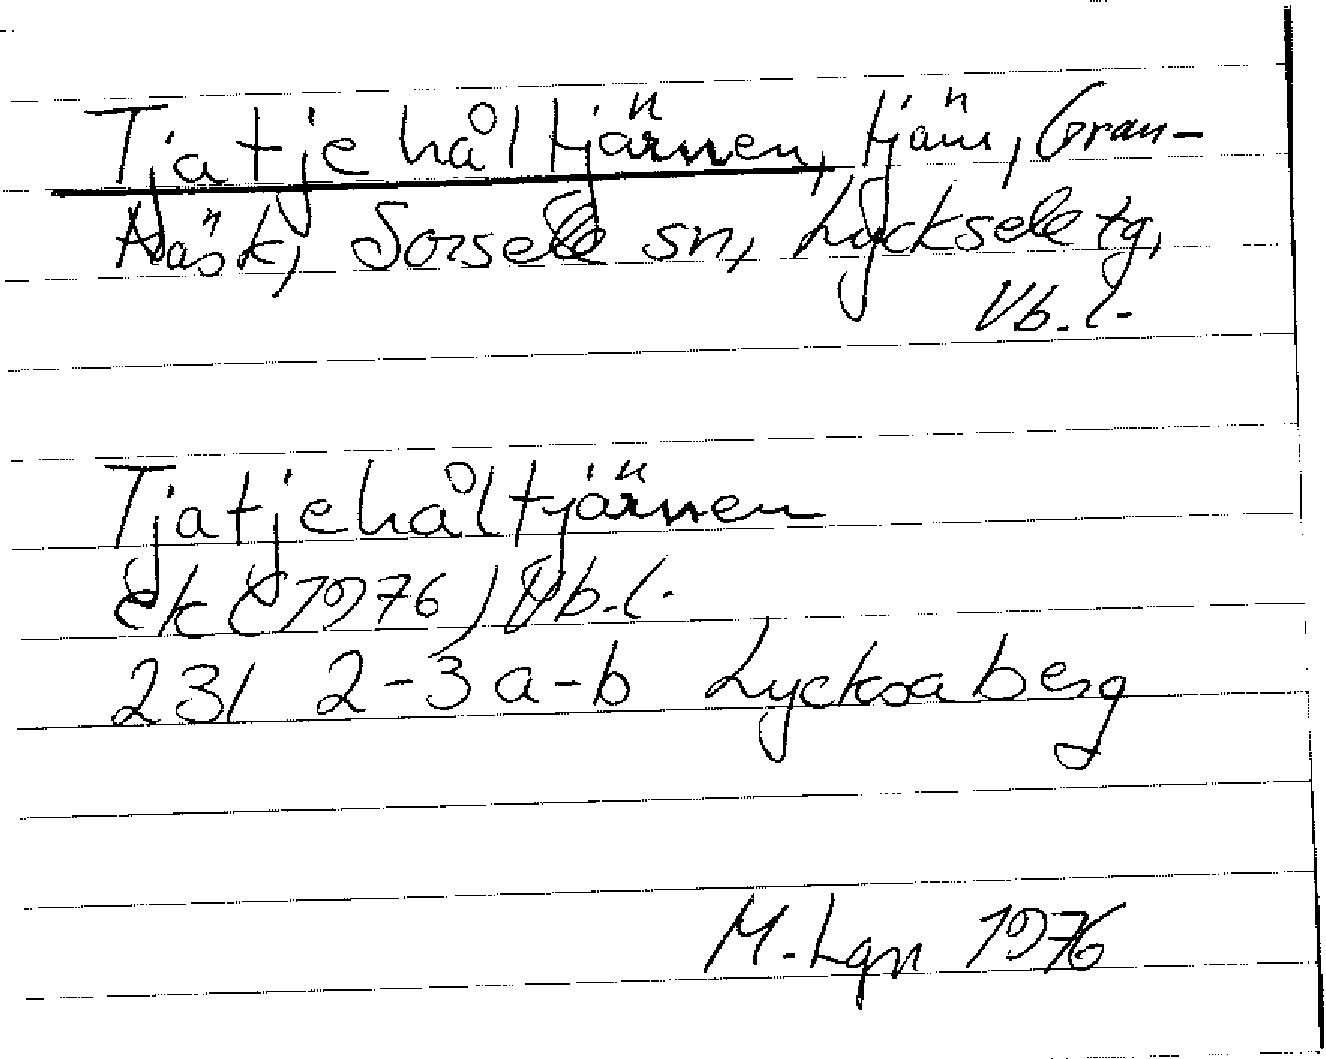 Tjatjehåltjärnen, tjärn, Gran-
näsk, Sorsele sn, Lycksele tg,
Vb. l.
Tjatjehåltjärnen
ek (1976) Vb. l.
23I 2-3 a-b Lycksaberg
M. Lgn 1976